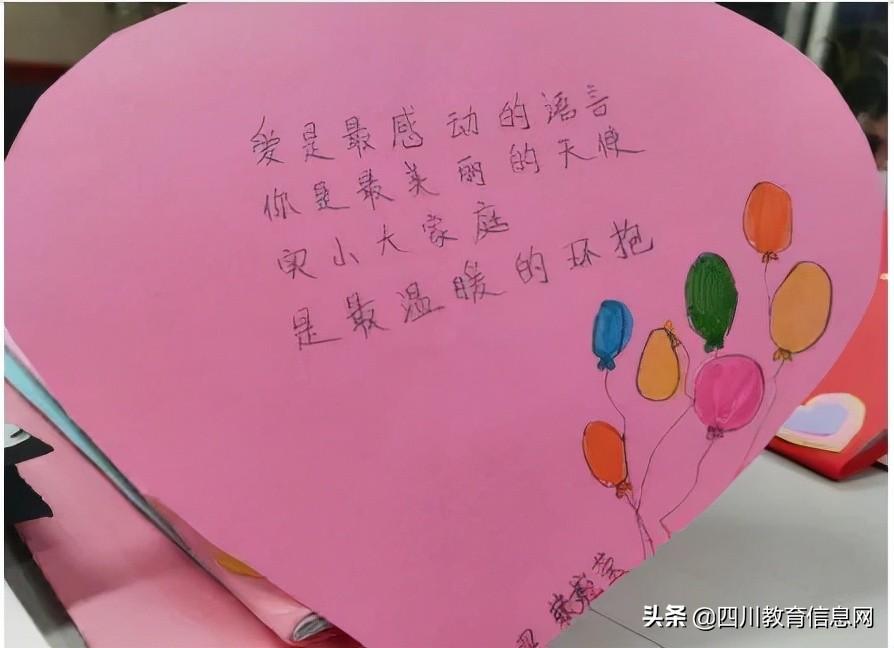 爱是最感动的语言
你是最美丽的天使
实小大家庭
是最温暖的环抱
头条 @四川教育信息网